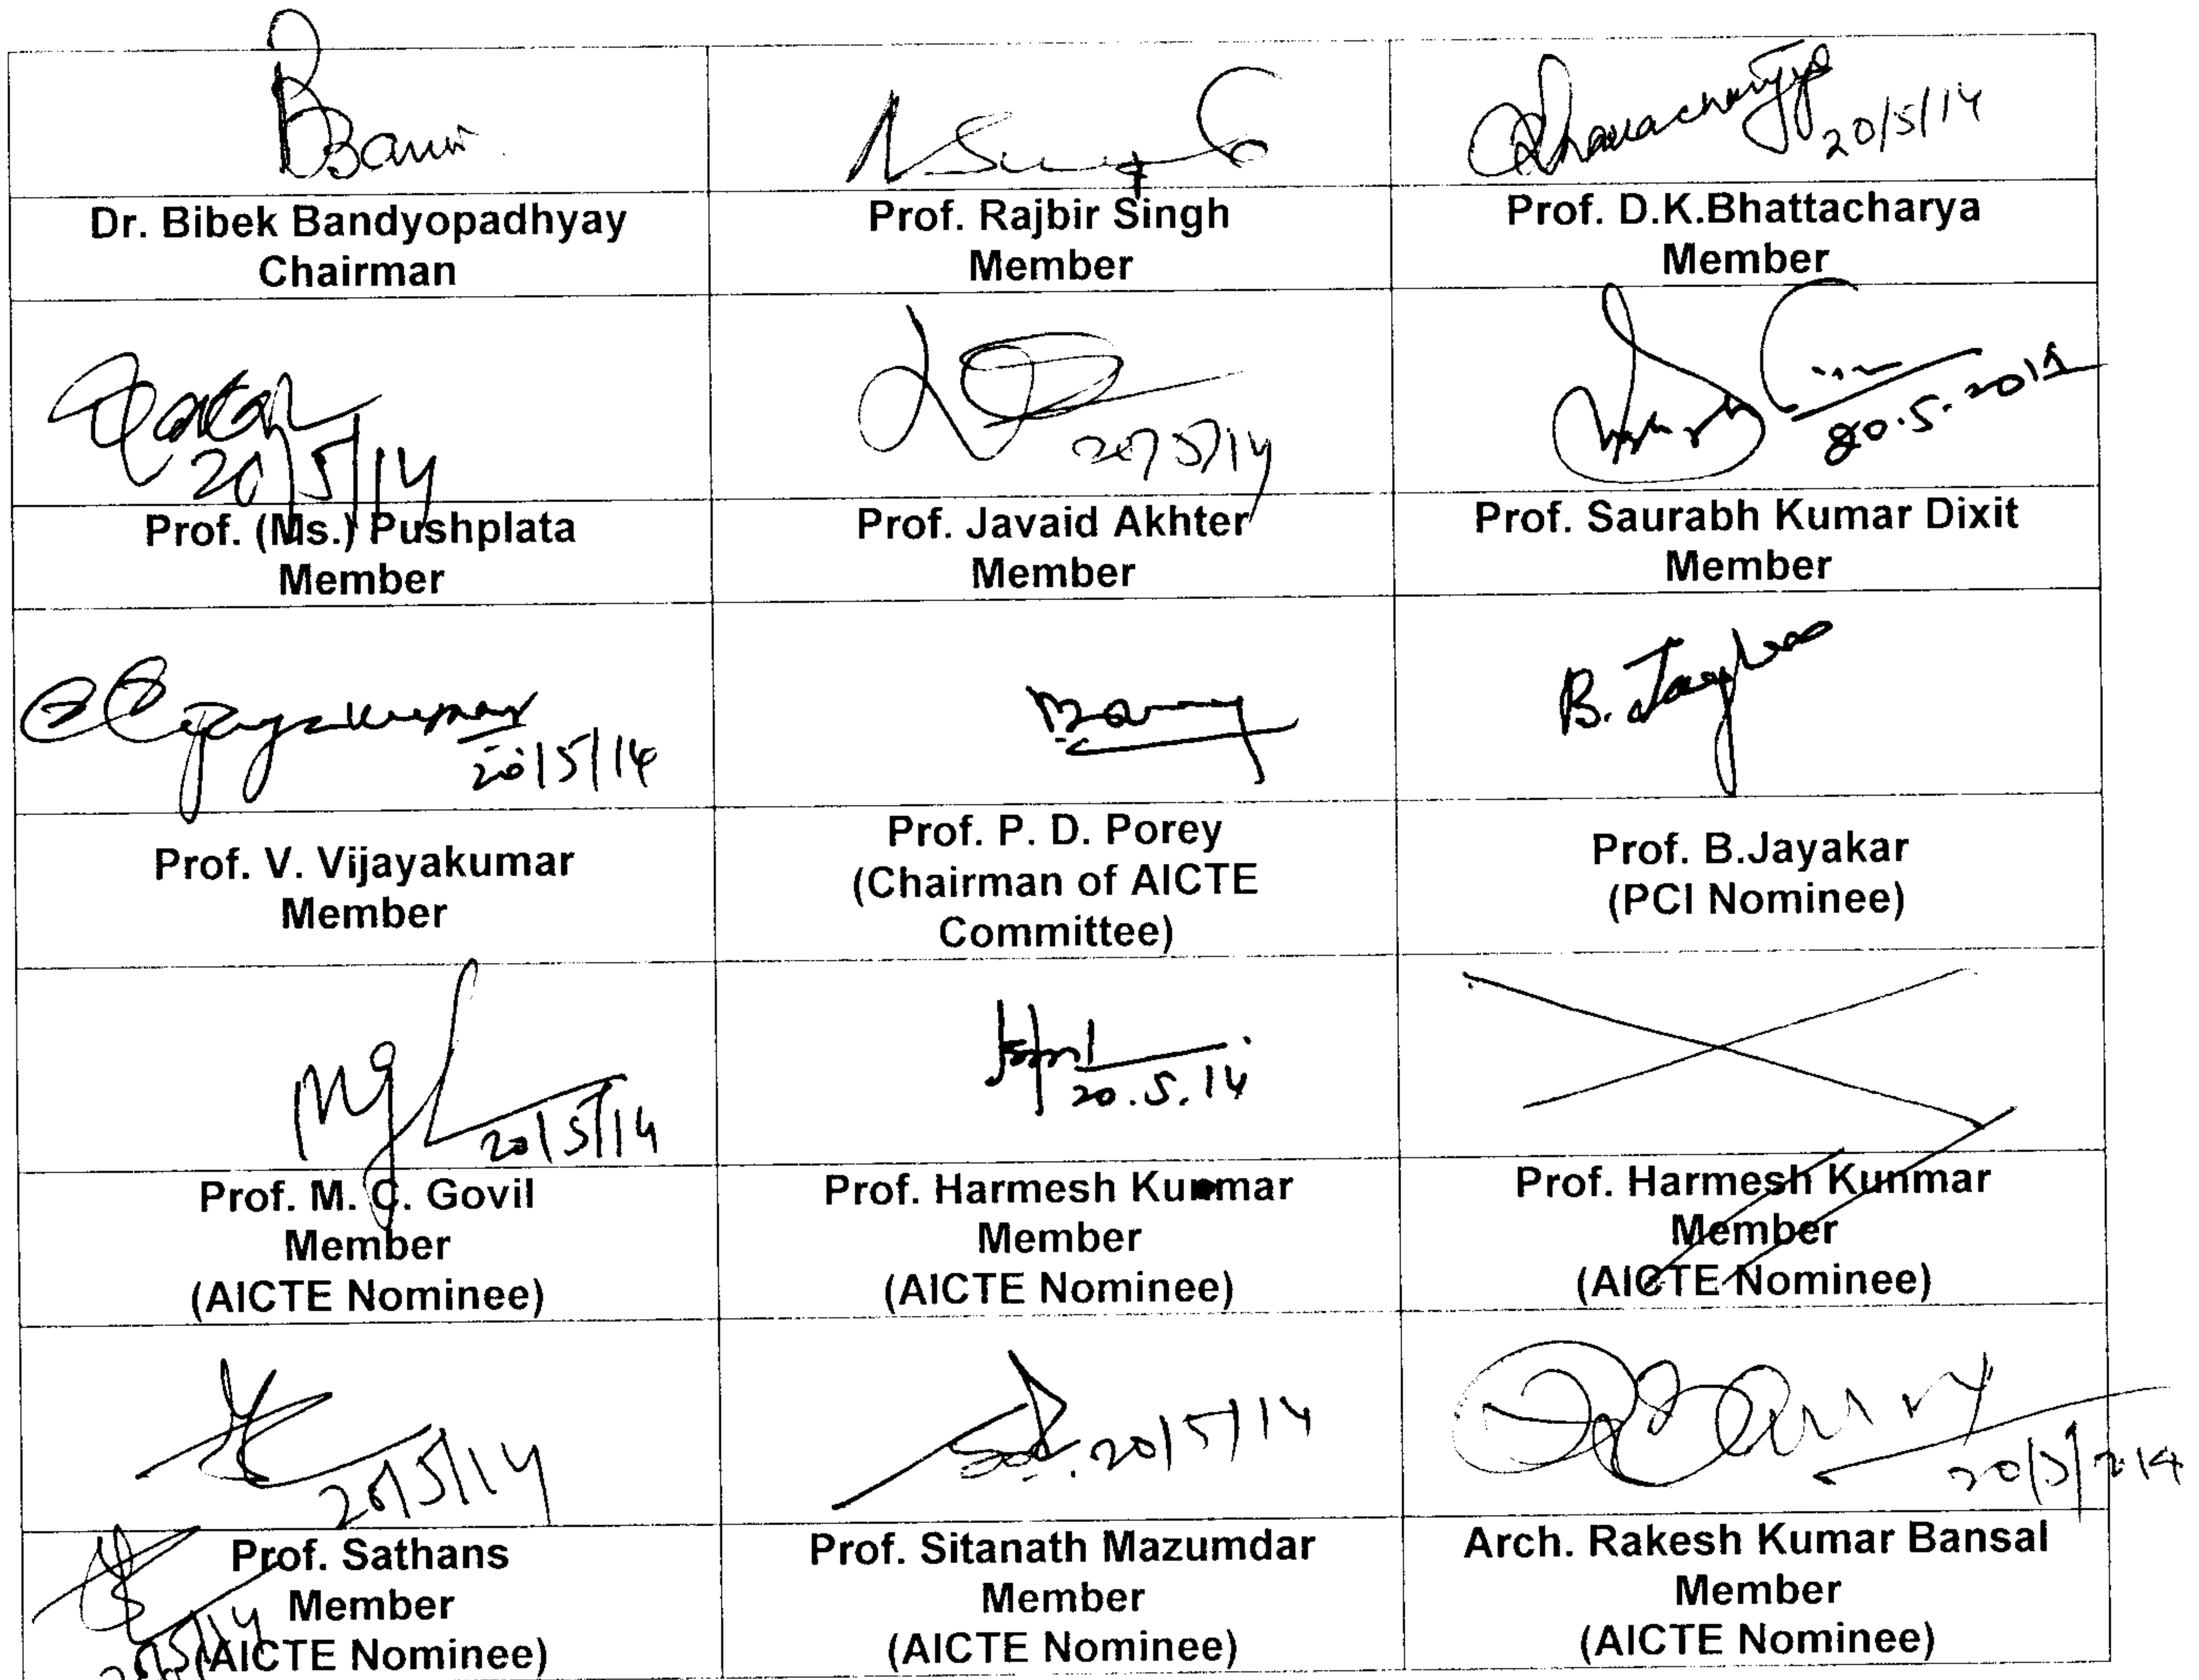 20/5/14
Dr. Bibek Bandyopadhyay
Chairman
Prof. Rajbir Singh
Member
Prof. D.K.Bhattacharya
Member
20/5/14
20/5/14
20.5.2014
Prof. (Ms.) Pushplata
Member
Prof. Javaid Akhter
Member
Prof. Saurabh Kumar Dixit
Member
Vijayakumar
20/5/14
B. Jay
Prof. V. Vijayakumar
Member
Prof. P. D. Porey
(Chairman of AICTE
Committee)
Prof. B.Jayakar
(PCI Nominee)
20/5/14
20.5.14
Prof. M. C. Govil
Member
(AICTE Nominee)
Prof. Harmesh Kunmar
Member
(AICTE Nominee)
Prof. Harmesh Kunmar
Member
(AICTE Nominee)
20/5/14
20/5/14
20/5/2014
Prof. Sathans
Member
(AICTE Nominee)
20/5/14
Prof. Sitanath Mazumdar
Member
(AICTE Nominee)
Arch. Rakesh Kumar Bansal
Member
(AICTE Nominee)